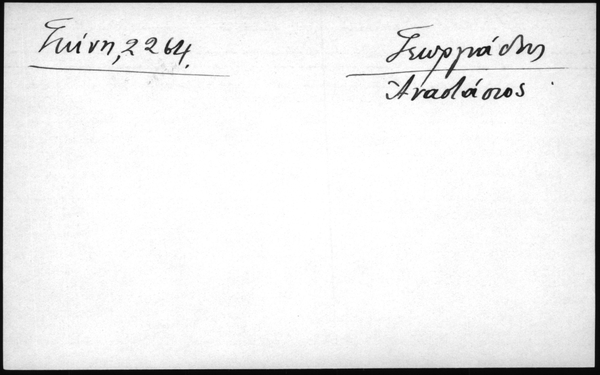 Γκίνη, 2264.
Γεωργιάδης
Αναστάσιος